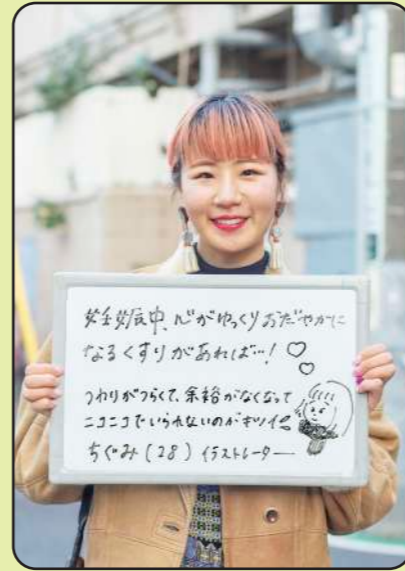 妊娠中、心がゆっくりおだやかに
なるくすりがあれば…！♡
つわりがつらくて、余裕がなくなって
ニコニコでいられないのがキツイ
ちぐみ(28) イラストレーター